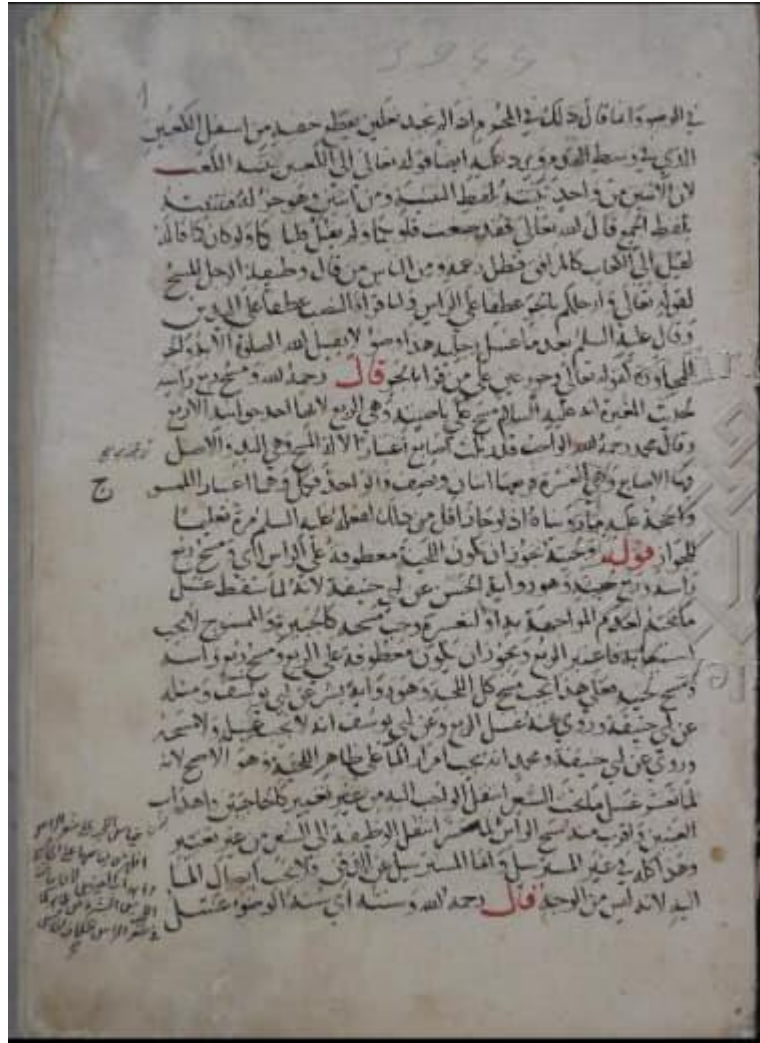 في الوضوء وانما قال ذلك في المحرم اذا لم يجد نعلين يقطع خفيه من اسفل الكعبين
الذي في وسط القدم ويرد عليه ايضا قوله تعالى الى الكعبين بتثنية الكعب
لان الاثنين من واحد تثنيته بلفظ التثنية ومن اثنين وهو جزء له فتثنيته
بلفظ الجمع قال الله تعالى فقد صغت قلوبكما ولم يقل قلباكما ولو كان كما قاله
لقيل الى الكعاب كالمرافق فبطل زعمه ومن الناس من قال وظيفة الرجل المسح
لقوله تعالى وارجلكم بالجر عطفا على الراس ولنا قراة النصب عطفا على اليدين
وقال عليه السلم بعد ما غسل رجليه هذا وضوء لا يقبل الله الصلوة الا به والجر
للمجاورة كقوله تعالى وحور عين على من قرا بالجر قال رحمه الله ومسح ربع راسه
لحديث المغيرة انه عليه السلام مسح على ناصيته وهي الربع لانها احد جوانبه الاربع
وقال محمد رحمه الله الواجب قدر ثلث اصابع اعتبارا لالة المسح وهي اليد والاصل
فيها الاصابع وهي العشرة فربعها اثنان ونصف والواحد اعتبار اللمس
والحجة عليه ما روينا اذ لو جاز اقل من ذلك لفعله عليه السلم مرة تعليما
للجواز قوله ولحيته يجوز ان تكون اللحية معطوفة على الراس اي ومسح ربع
راسه وربع لحيته وهو رواية الحسن عن ابي حنيفة لانه لما سقط غسل
ما تحته لعدم المواجهة به او لعسره وجب مسحه كالجبيرة والممسوح لا يجب
استيعابه فاعتبر الربع ويجوز ان يكون معطوفة على الربع ومسح ربع راسه
ومسح لحيته فعلى هذا يجب مسح كل اللحية وهو رواية بشر عن ابي يوسف ومثله
عن ابي حنيفة وروي عنه غسل الربع وعن ابي يوسف انه لا يجب غسله ولا مسحه
وروي عن ابي حنيفة ومحمد انه يجب امرار الماء على ظاهر اللحية وهو الاصح لانه
لما تعسر غسل ما تحت الشعر انتقل الواجب اليه من غير تغيير كالحاجبين واهداب
العينين واقرب منه مسح الراس لما تعسر انتقل الوظيفة الى الشعر من غير تغيير
وهذا كله في غير المسترسل واما المسترسل عن الذقن فلا يجب ايصال الماء
اليه لانه ليس من الوجه قال رحمه الله وسنته اي سنة الوضوء غسل